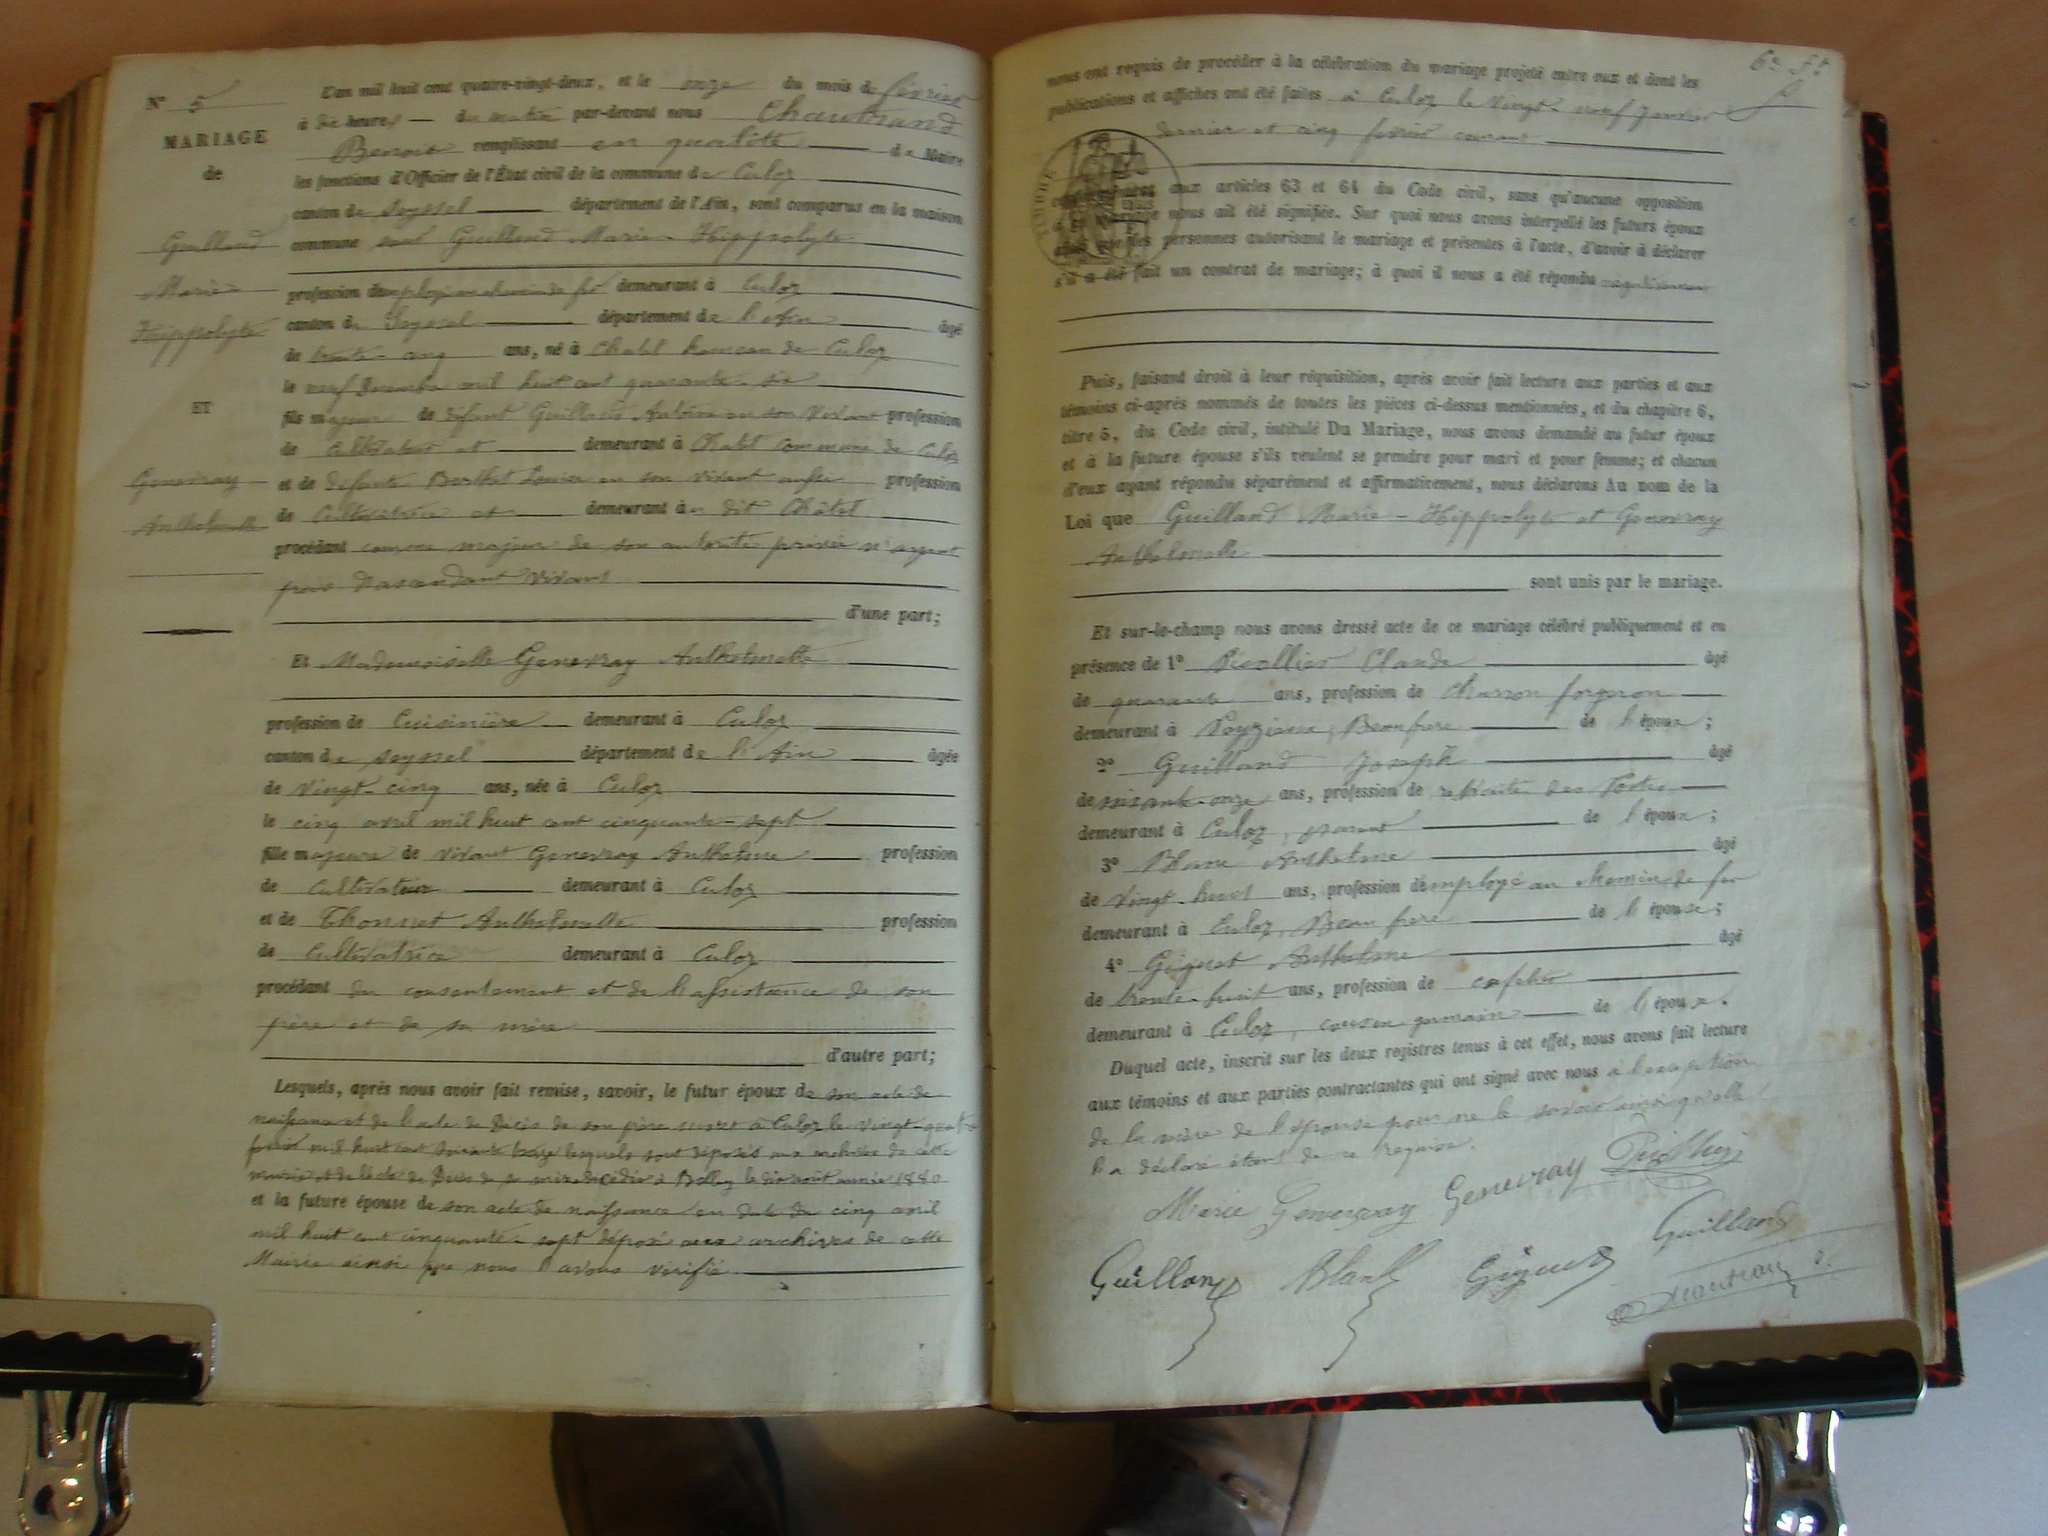 N° 5
MARIAGE
de
Guilland
Marie-
Hippolyte
ET
Genevray
Anthelmette
L'an mil huit cent quatre-vingt-deux, et le onze du mois de février
à dix heures du matin par-devant nous Chautrand
Benoit remplissant en qualité de Maire
les fonctions d'Officier de l'État civil de la commune de Culoz
canton de Seyssel département de l'Ain, sont comparus en la maison
commune Guilland Marie-Hippolyte
profession d'employé au chemin de fer demeurant à Culoz
canton de Seyssel département de l'Ain âgé
de trente-cinq ans, né à Chatel hameau de Culoz
le neuf mil huit cent quarante-six
fils majeur de défunt Guilland Antoine en son vivant profession
de cultivateur et demeurant à Chatel commune de Culoz
et de défunte Berthet Louise en son vivant aussi profession
de cultivatrice et demeurant au dit Châtel
procédant comme majeur de son autorité privée n'ayant
pas d'ascendant vivant
d'une part;
Et Mademoiselle Genevray Anthelmette
profession de Cuisinière demeurant à Culoz
canton de Seyssel département de l'Ain âgée
de vingt-cinq ans, née à Culoz
le cinq avril mil huit cent cinquante-sept
fille majeure de vivant Genevray Anthelme profession
de cultivateur demeurant à Culoz
et de Thonnet Anthelmette profession
de cultivatrice demeurant à Culoz
procédant du consentement et de l'assistance de son
père et de sa mère
d'autre part;
Lesquels, après nous avoir fait remise, savoir, le futur époux de son acte de
naissance et de l'acte de Décès de son père à Culoz le vingt-quatre
mil huit cent soixante lesquels sont déposés aux archives de cette
mairie et de l'acte de Décès de sa mère décédée à le dix août année 1880
et la future épouse de son acte de naissance en date du cinq avril
mil huit cent cinquante-sept déposé aux archives de cette
Mairie ainsi que nous l'avons vérifié
6e
nous ont requis de procéder à la célébration du mariage projeté entre eux et dont les
publications et affiches ont été faites à Culoz le vingt-neuf Janvier
dernier et cinq février courant
TIMBRE
conformément aux articles 63 et 64 du Code civil, sans qu'aucune opposition
à ce mariage nous ait été signifiée. Sur quoi nous avons interpellé les futurs époux
ainsi que les personnes autorisant le mariage et présentes à l'acte, d'avoir à déclarer
s'il a été fait un contrat de mariage; à quoi il nous a été répondu négativement
Puis, faisant droit à leur réquisition, après avoir fait lecture aux parties et aux
témoins ci-après nommés de toutes les pièces ci-dessus mentionnées, et du chapitre 6,
titre 5, du Code civil, intitulé Du Mariage, nous avons demandé au futur époux
et à la future épouse s'ils veulent se prendre pour mari et pour femme; et chacun
d'eux ayant répondu séparément et affirmativement, nous déclarons Au nom de la
Loi que Guilland Marie-Hippolyte et Genevray
Anthelmette
sont unis par le mariage.
Et sur-le-champ nous avons dressé acte de ce mariage célébré publiquement et en
présence de 1° Claude âgé
de quarante ans, profession de Charron forgeron
demeurant à Beaufrere de l'époux;
2° Guilland Joseph âgé
de soixante-onze ans, profession de retraité des Postes
demeurant à Culoz, parent de l'époux;
3° Blanc Anthelme âgé
de vingt-huit ans, profession d'employé au chemin de fer
demeurant à Culoz, Beau frère de l'épouse;
4° Giguet Anthelme âgé
de trente-huit ans, profession de
demeurant à Culoz, cousin germain de l'époux.
Duquel acte, inscrit sur les deux registres tenus à cet effet, nous avons fait lecture
aux témoins et aux parties contractantes qui ont signé avec nous à l'exception
de la mère de l'épouse pour ne le savoir ainsi qu'elle
l'a déclaré étant de ce requise.
Marie Genevray Genevray
Guilland
Guilland Blanc Giguet
Chautrand B.